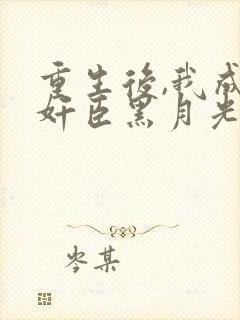 重生後,我成
奸臣黑月光
岑某